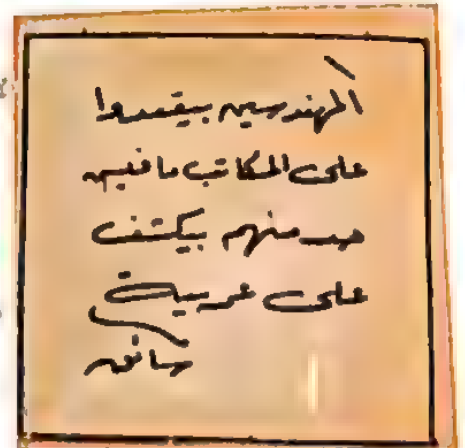 المهندسين بيقعدوا
على المكاتب ما فيش
حد منهم بيكشف
على عربية